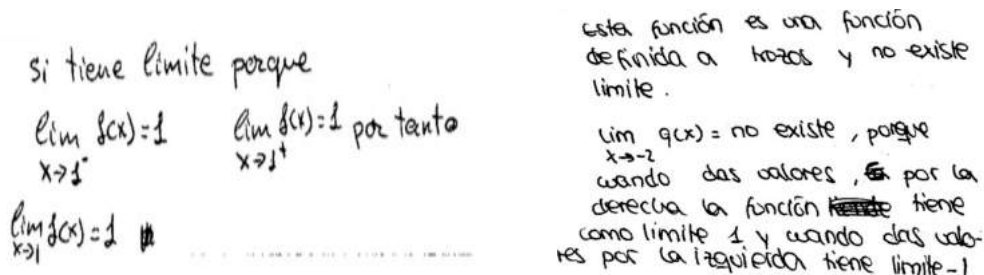 si tiene límite porque
lim f(x)=1 lim f(x)=1 por tanto
x→1⁻ x→1⁺
lim f(x)=1
x→1
Esta función es una función
definida a trozos y no existe
limite.
lim g(x) = no existe, porque
x→-2
cuando das valores, por la
derecha la función tiene
como limite 1 y cuando das valo-
res por la izquierda tiene limite -1